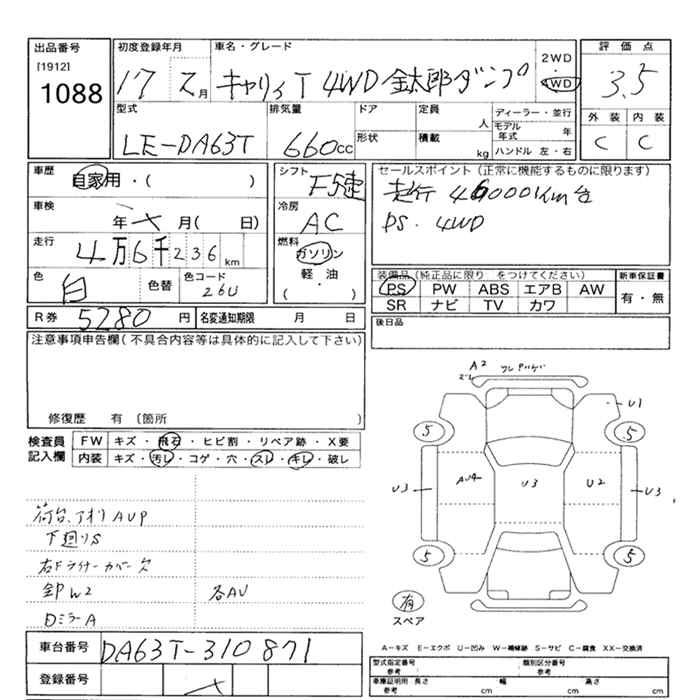 出品番号
[1912]
1088
初度登録年月
17 2月
車名・グレード
キャリィT 4WD 金太郎ダンプ
2WD
4WD
評価点
3.5
外装 内装
C C
型式
LE-DA63T
排気量
660cc
ドア
形状
定員
人
積載
kg
ディーラー・並行
モデル年式 年
ハンドル 左・右
車歴
自家用・( )
車検
年 月( 日)
走行
4万6千236km
色
白
色替
色コード
26U
シフト
F5速
冷房
AC
燃料
ガソリン
軽・油
( )
セールスポイント(正常に機能するものに限ります)
走行 46000Km台
PS. 4WD
装備品(純正品に限り をつけてください)
PS PW ABS エアB AW
SR ナビ TV カワ
新車保証書
有・無
R券 5280円
名変通知期限 月 日
後日品
注意事項申告欄(不具合内容等は具体的に記入して下さい)
修復歴 有 [箇所
検査員記入欄
FW キズ・飛石・ヒビ割・リペア跡・X要
内装 キズ・汚レ・コゲ・穴・スレ・キレ・破レ
荷台、アオリ AUP
下廻り S
右Fライナーカバー欠
W2
各AU
DミラーA
車台番号
DA63T-310871
登録番号
A2
U1
5
5
U3
AU4
U3
U2
U3
5
5
有
スペア
A-キズ E-エクボ U-凹み W-補修跡 S-サビ C-腐食 XX-交換済
型式指定番号
参考
類別区分番号
参考
車庫証明用 長さ
参考 cm
幅
cm
高さ
cm